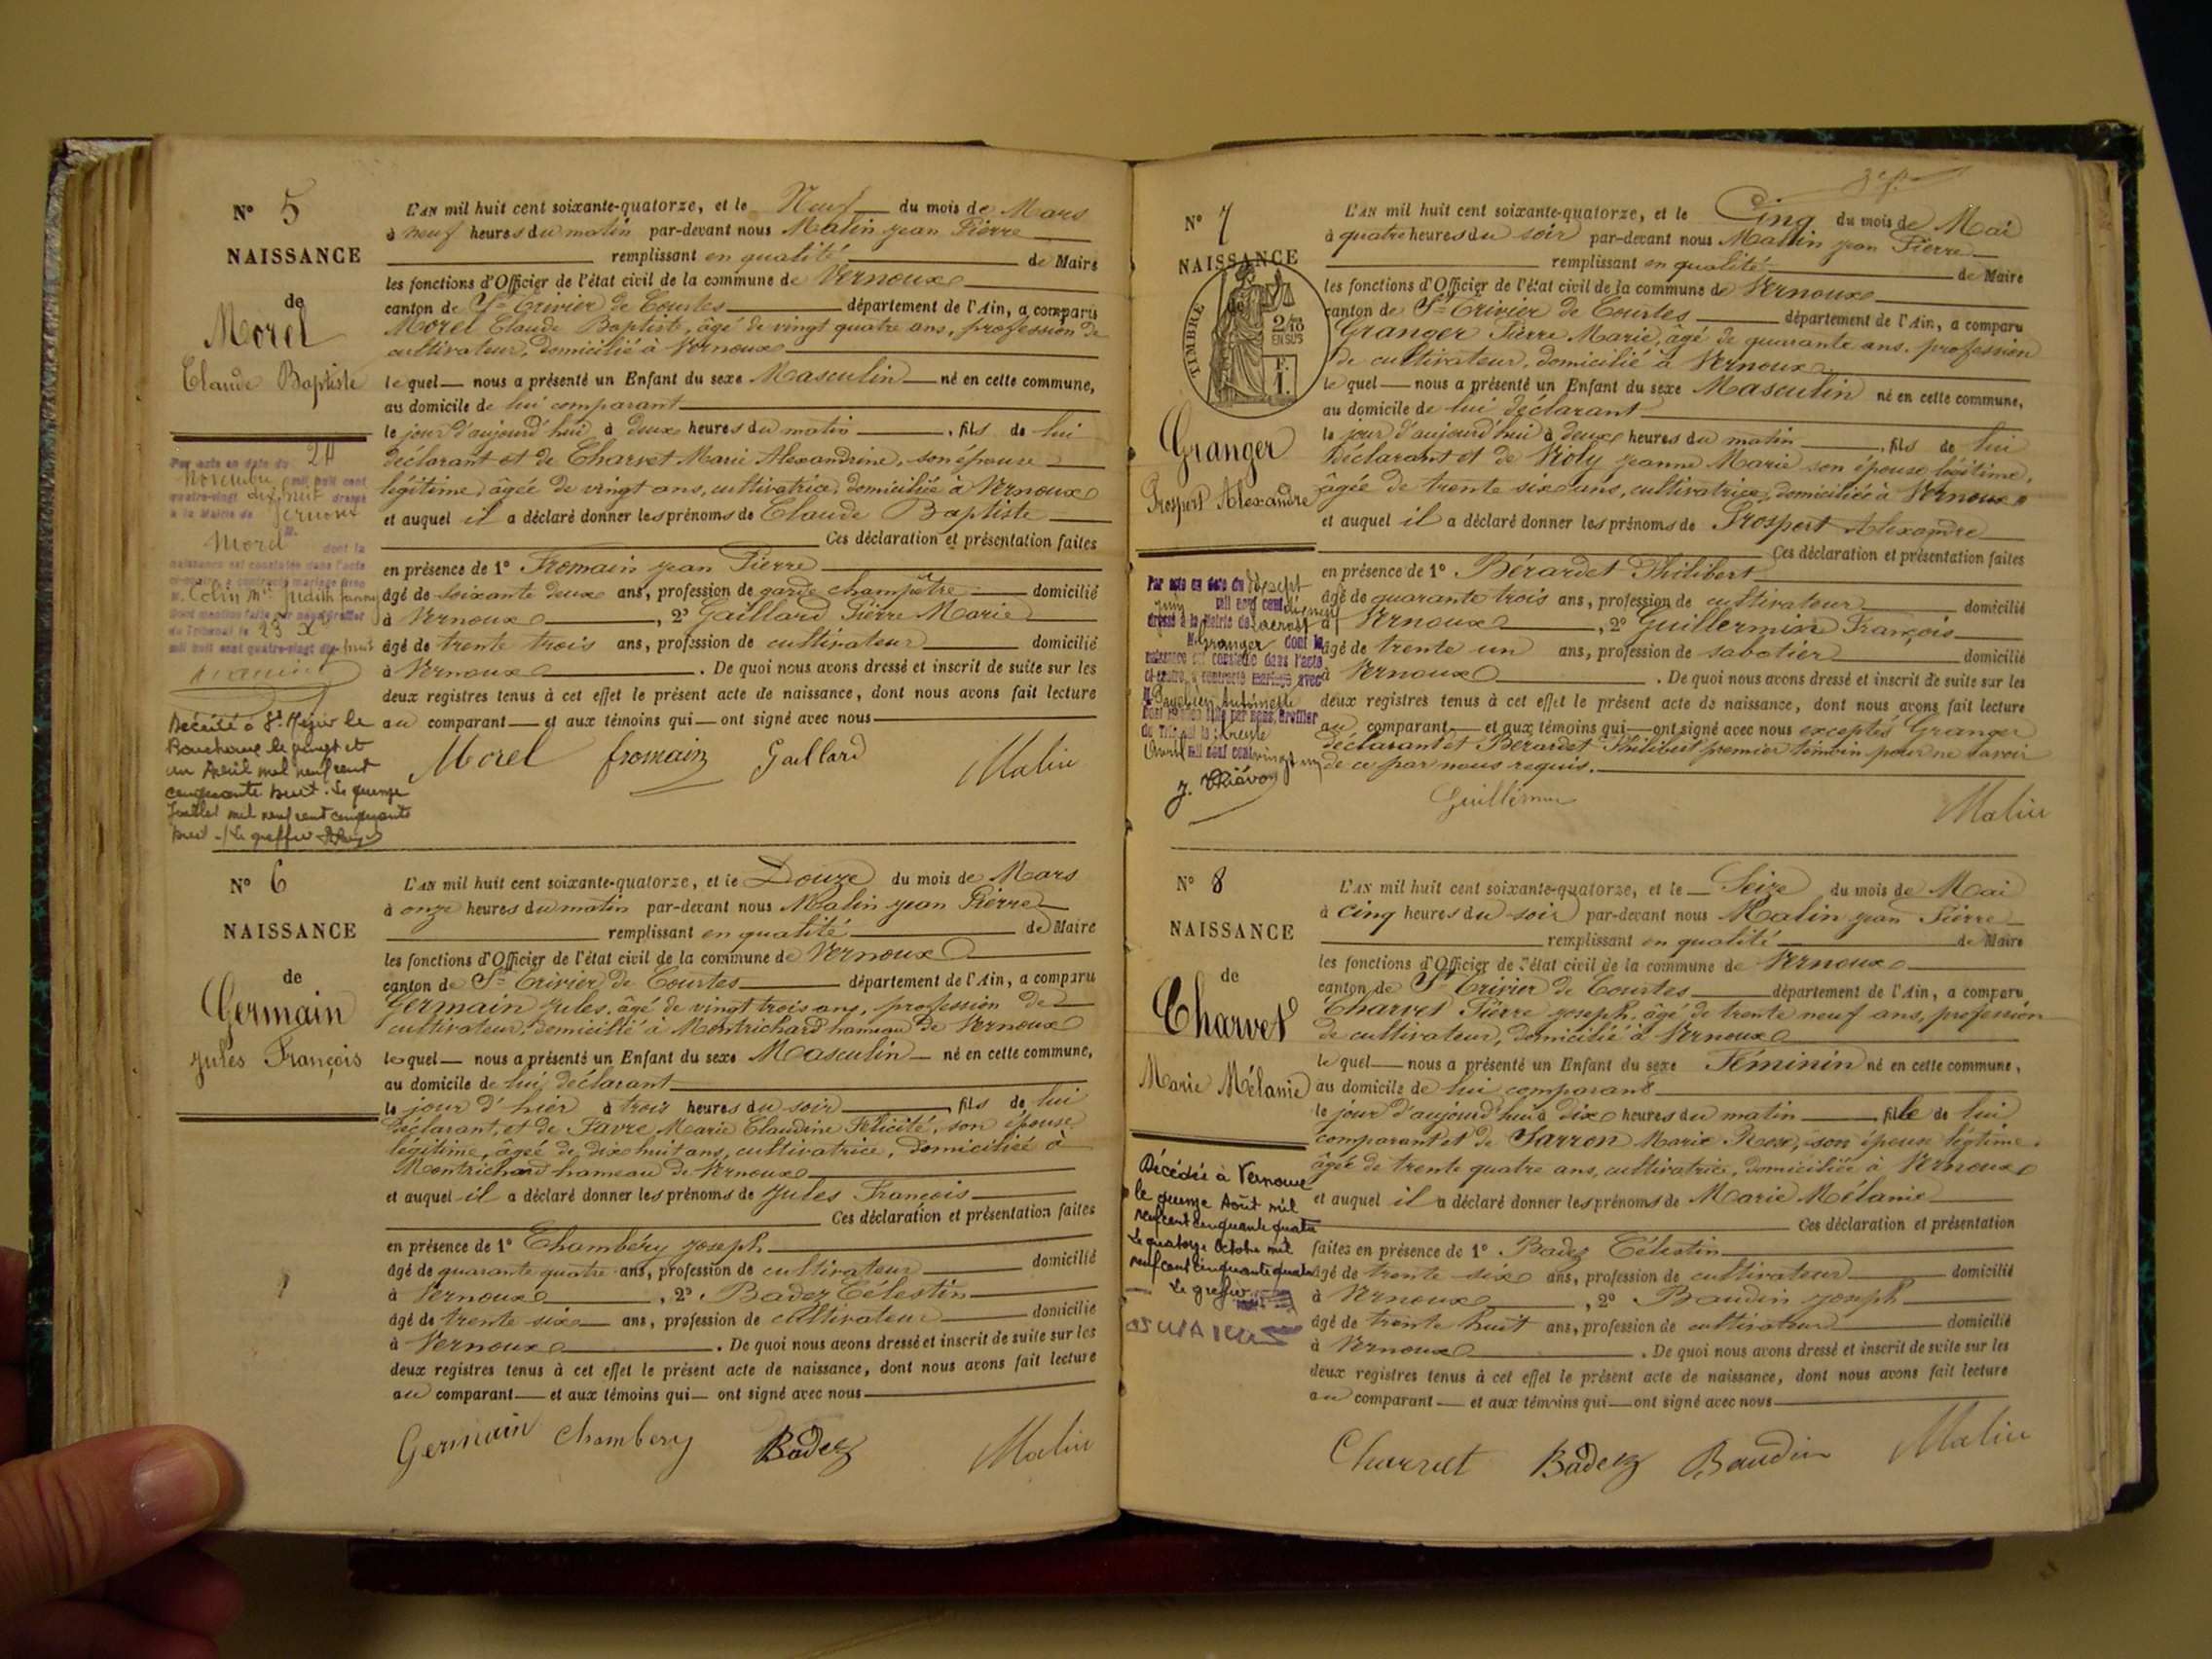 N° 5
NAISSANCE
de
Morel
Claude Baptiste
Par acte en date du 24
Novembre mil huit cent
quatre-vingt dix huit dressé
à la Mairie de Vernoux
M. Morel dont la
naissance est constatée dans l'acte
ci-contre a contracté mariage avec
M. Colin Mie Judith Fanny
Dont mention faite par nous Greffier
du Tribunal le 23 Xbre
mil huit cent quatre-vingt dix huit
Décédé à St
Boucheroux le vingt et
un Avril mil neuf cent
cinquante huit. Le quinze
Juillet mil neuf cent cinquante
huit ./. Le greffier
L'AN mil huit cent soixante-quatorze, et le Neuf du mois de Mars
à neuf heures du matin par-devant nous Malin jean Pierre
remplissant en qualité de Maire
les fonctions d'Officier de l'état civil de la commune de Vernoux
canton de St Trivier de Courtes département de l'Ain, a comparu
Morel Claude Baptiste, âgé de vingt quatre ans, profession de
cultivateur, domicilié à Vernoux
le quel nous a présenté un Enfant du sexe Masculin né en cette commune,
au domicile de lui comparant
le jour d'aujourd'hui à deux heures du matin , fils de lui
déclarant et de Charvet Marie Alexandrine, son épouse
légitime, âgée de vingt ans, cultivatrice, domiciliée à Vernoux
et auquel il a déclaré donner les prénoms de Claude Baptiste
Ces déclaration et présentation faites
en présence de 1° Fromain jean Pierre
âgé de soixante deux ans, profession de garde champêtre domicilié
à Vernoux , 2° Gaillard Pierre Marie
âgé de trente trois ans, profession de cultivateur domicilié
à Vernoux . De quoi nous avons dressé et inscrit de suite sur les
deux registres tenus à cet effet le présent acte de naissance, dont nous avons fait lecture
au comparant et aux témoins qui ont signé avec nous
Morel fromain Gaillard Malin
N° 6
NAISSANCE
de
Germain
jules François
L'AN mil huit cent soixante-quatorze, et le Douze du mois de Mars
à onze heures du matin par-devant nous Malin jean Pierre
remplissant en qualité de Maire
les fonctions d'Officier de l'état civil de la commune de Vernoux
canton de St Trivier de Courtes département de l'Ain, a comparu
Germain jules, âgé de vingt trois ans, profession de
cultivateur, domicilié à Montrichard hameau de Vernoux
lequel nous a présenté un Enfant du sexe Masculin né en cette commune,
au domicile de lui déclarant
le jour d'hier à trois heures du soir , fils de lui
déclarant, et de Favre Marie Claudine Félicité, son épouse
légitime, âgée de dix huit ans, cultivatrice, domiciliée à
Montrichard hameau de Vernoux
et auquel il a déclaré donner les prénoms de jules François
Ces déclaration et présentation faites
en présence de 1° Chambéry joseph
âgé de quarante quatre ans, profession de cultivateur domicilié
à Vernoux , 2° Badez Célestin
âgé de trente six ans, profession de cultivateur domicilié
à Vernoux . De quoi nous avons dressé et inscrit de suite sur les
deux registres tenus à cet effet le présent acte de naissance, dont nous avons fait lecture
au comparant et aux témoins qui ont signé avec nous
Germain Chambery Badez Malin
N° 7
NAISSANCE
de
TIMBRE
2/10
EN SUS
F.
1.
Granger
Prospert Alexandre
Par acte en date du dix sept
juin mil neuf cent dix neuf
dressé à la Mairie de Lacrost
M. Granger dont la
naissance est constatée dans l'acte
ci-contre, a contracté mariage avec
Antoinette
Dont mention faite par nous, Greffier
du Tribunal le trente
Avril mil neuf cent vingt un
L'AN mil huit cent soixante-quatorze, et le Cinq du mois de Mai
à quatre heures du soir par-devant nous Malin jean Pierre
remplissant en qualité de Maire
les fonctions d'Officier de l'état civil de la commune de Vernoux
canton de St Trivier de Courtes département de l'Ain, a comparu
Granger Pierre Marie, âgé de quarante ans, profession
de cultivateur, domicilié à Vernoux
le quel nous a présenté un Enfant du sexe Masculin né en cette commune,
au domicile de lui déclarant
le jour d'aujourd'hui à deux heures du matin , fils de lui
déclarant et de Voly jeanne Marie son épouse légitime,
âgée de trente six ans, cultivatrice, domiciliée à Vernoux
et auquel il a déclaré donner les prénoms de Prospert Alexandre
Ces déclaration et présentation faites
en présence de 1° Bérardet Philibert
âgé de quarante trois ans, profession de cultivateur domicilié
à Vernoux , 2° Guillermin François
âgé de trente un ans, profession de sabotier domicilié
à Vernoux . De quoi nous avons dressé et inscrit de suite sur les
deux registres tenus à cet effet le présent acte de naissance, dont nous avons fait lecture
au comparant et aux témoins qui ont signé avec nous exceptés Granger
déclarant et Bérardet Philibert premier témoin pour ne savoir
de ce par nous requis.
Guillermin Malin
N° 8
NAISSANCE
de
Charvet
Marie Mélanie
Décédée à Vernoux
le quinze Août mil
neuf cent cinquante quatre
Le quatorze Octobre mil
neuf cent cinquante quatre
Le greffier
L'AN mil huit cent soixante-quatorze, et le Seize du mois de Mai
à cinq heures du soir par-devant nous Malin jean Pierre
remplissant en qualité de Maire
les fonctions d'Officier de l'état civil de la commune de Vernoux
canton de St Trivier de Courtes département de l'Ain, a comparu
Charvet Pierre joseph, âgé de trente neuf ans, profession
de cultivateur, domicilié à Vernoux
le quel nous a présenté un Enfant du sexe Féminin né en cette commune,
au domicile de lui comparant
le jour d'aujourd'hui à dix heures du matin , fille de lui
comparant et de Sarron Marie Rose, son épouse légitime.
âgée de trente quatre ans, cultivatrice, domiciliée à Vernoux
et auquel il a déclaré donner les prénoms de Marie Mélanie
Ces déclaration et présentation
faites en présence de 1° Badez Célestin
âgé de trente six ans, profession de cultivateur domicilié
à Vernoux , 2° Baudin joseph
âgé de trente huit ans, profession de cultivateur domicilié
à Vernoux . De quoi nous avons dressé et inscrit de suite sur les
deux registres tenus à cet effet le présent acte de naissance, dont nous avons fait lecture
au comparant et aux témoins qui ont signé avec nous
Charvet Badez Baudin Malin